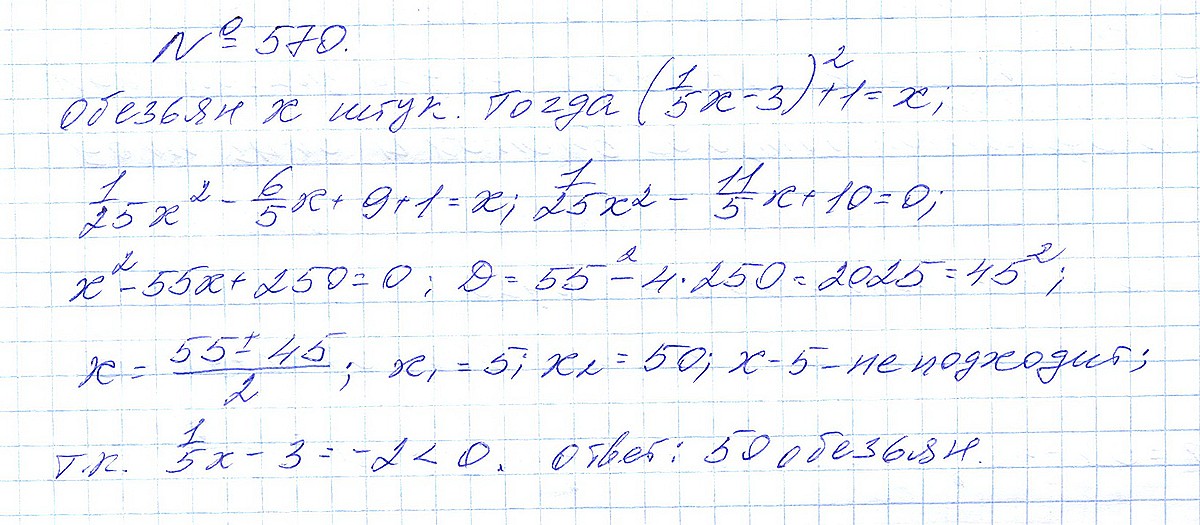 № 570.
Обезьян x штук. Тогда (1/5x-3)²+1=x;
1/25x² - 6/5x + 9+1=x; 1/25x² - 11/5x+10=0;
x²-55x+250=0; D=55²-4·250=2025=45²;
x = (55±45)/2; x₁=5; x₂=50; x-5-не подходит;
т.к. 1/5x-3=-2<0. Ответ: 50 обезьян.